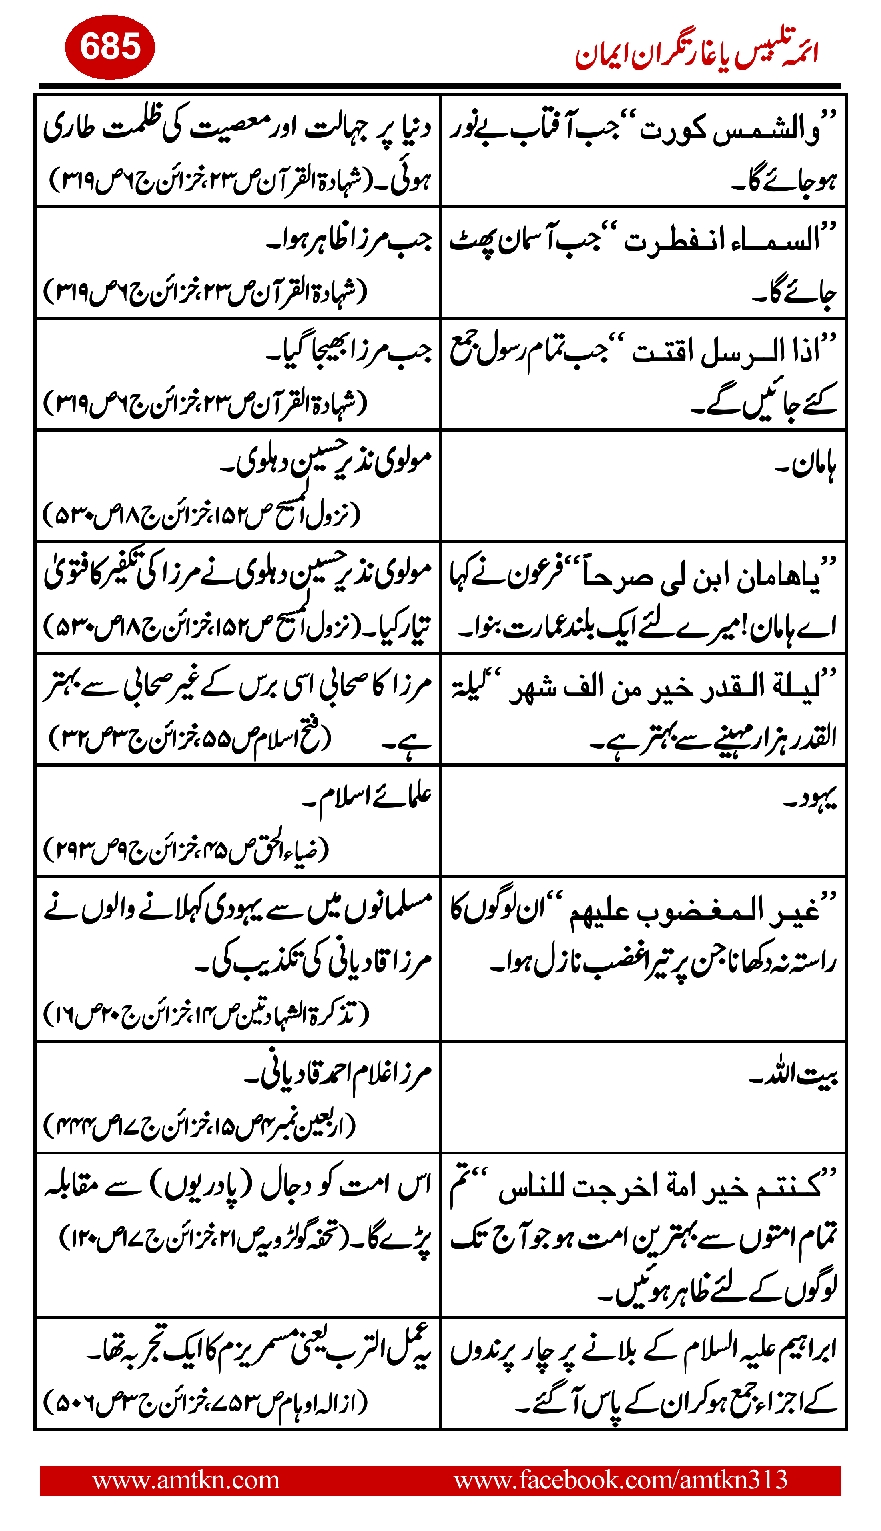 685
ائمہ تلبیس یا غارتگران ایمان
’’والشمس کورت‘‘ جب آفتاب بے نور
ہو جائے گا۔
دنیا پر جہالت اور معصیت کی ظلمت طاری
ہوئی۔ (شہادۃ القرآن ص۲۳، خزائن ج۶ ص۳۱۹)
’’السماء انفطرت‘‘ جب آسمان پھٹ
جائے گا۔
جب مرزا ظاہر ہوا۔
(شہادۃ القرآن ص۲۳، خزائن ج۶ ص۳۱۹)
’’اذا الرسل اقتت‘‘ جب تمام رسول جمع
کئے جائیں گے۔
جب مرزا بھیجا گیا۔
(شہادۃ القرآن ص۲۳، خزائن ج۶ ص۳۱۹)
ہامان۔
مولوی نذیر حسین دہلوی۔
(نزول المسیح ص۱۵۲، خزائن ج۱۸ ص۵۳۰)
’’یاھامان ابن لی صرحاً‘‘ فرعون نے کہا
اے ہامان! میرے لئے ایک بلند عمارت بنوا۔
مولوی نذیر حسین دہلوی نے مرزا کی تکفیر کا فتویٰ
تیار کیا۔ (نزول المسیح ص۱۵۲، خزائن ج۱۸ ص۵۳۰)
’’لیلۃ القدر خیر من الف شھر‘‘ لیلۃ
القدر ہزار مہینے سے بہتر ہے۔
مرزا کا صحابی اسی برس کے غیر صحابی سے بہتر
ہے۔ (فتح اسلام ص۵۵، خزائن ج۳ ص۳۲)
یہود۔
علمائے اسلام۔
(ضیاء الحق ص۴۵، خزائن ج۹ ص۲۹۳)
’’غیر المغضوب علیھم‘‘ ان لوگوں کا
راستہ نہ دکھانا جن پر تیرا غضب نازل ہوا۔
مسلمانوں میں سے یہودی کہلانے والوں نے
مرزا قادیانی کی تکذیب کی۔
(تذکرۃ الشہادتین ص۱۴، خزائن ج۲۰ ص۱۶)
بیت اللہ۔
مرزا غلام احمد قادیانی۔
(اربعین نمبر۴ ص۱۵، خزائن ج۱۷ ص۴۴۴)
’’کنتم خیر امۃ اخرجت للناس‘‘ تم
تمام امتوں سے بہترین امت ہو جو آج تک
لوگوں کے لئے ظاہر ہوئیں۔
اس امت کو دجال (پادریوں) سے مقابلہ
پڑے گا۔ (تحفہ گولڑویہ ص۲۱، خزائن ج۱۷ ص۱۲۰)
ابراہیم علیہ السلام کے بلانے پر چار پرندوں
کے اجزاء جمع ہوکر ان کے پاس آگئے۔
یہ عمل الترب یعنی مسمریزم کا ایک تجربہ تھا۔
(ازالہ اوہام ص۷۵۳، خزائن ج۳ ص۵۰۶)
www.amtkn.com
www.facebook.com/amtkn313